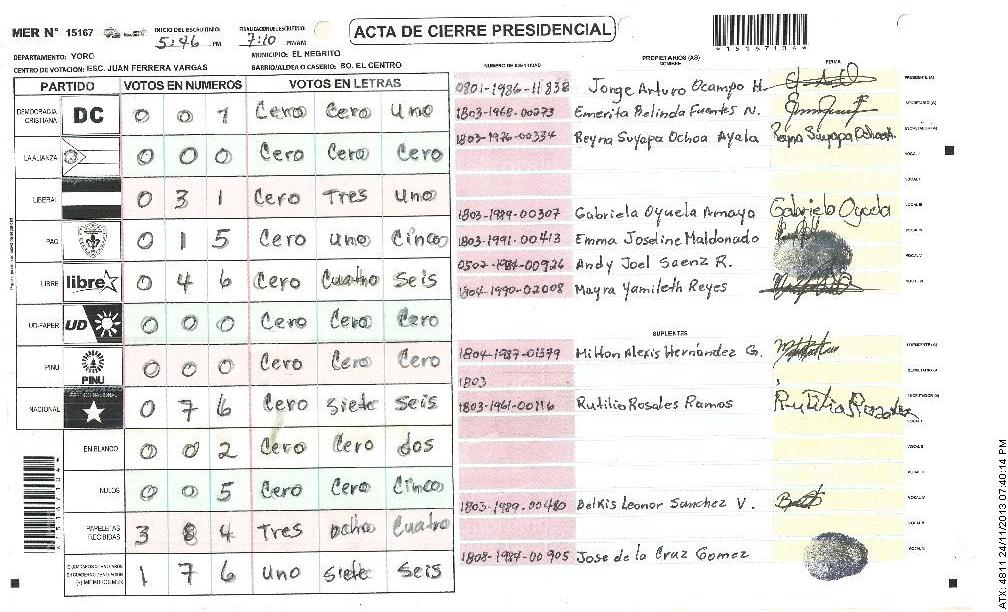 MER N° 15167
INICIO DEL ESCRUTINIO: 5:46 PM
FINALIZACION DEL ESCRUTINIO: 7:10 PM/AM
ACTA DE CIERRE PRESIDENCIAL
DEPARTAMENTO: YORO
MUNICIPIO: EL NEGRITO
CENTRO DE VOTACION: ESC. JUAN FERRERA VARGAS
BARRIO/ALDEA O CASERIO: BO. EL CENTRO
PARTIDO VOTOS EN NUMEROS VOTOS EN LETRAS
DEMOCRACIA CRISTIANA DC 0 0 1 Cero Cero Uno
LA ALIANZA 0 0 0 Cero Cero Cero
LIBERAL 0 3 1 Cero Tres Uno
PAC 0 1 5 Cero uno Cinco
LIBRE libre 0 4 6 Cero Cuatro Seis
UD-FAPER UD 0 0 0 Cero Cero Cero
PINU PINU 0 0 0 Cero Cero Cero
NACIONAL PARTIDO NACIONAL 0 7 6 Cero Siete Seis
EN BLANCO 0 0 2 Cero Cero dos
NULOS 0 0 5 Cero Cero Cinco
PAPELETAS RECIBIDAS 3 8 4 Tres ocho Cuatro
1 7 6 uno Siete Seis
PROPIETARIOS (AS)
NUMERO DE IDENTIDAD NOMBRE FIRMA
0801-1986-11838 Jorge Arturo Ocampo H. PRESIDENTE (A)
1803-1968-00273 Emerita Belinda Fuentes N. SECRETARIO (A)
1803-1976-00334 Reyna Suyapa Ochoa Ayala Reyna Suyapa Ochoa A. ESCRUTADOR (A)
VOCAL I
VOCAL II
1803-1989-00307 Gabriela Oyuela Amaya Gabriela Oyuela VOCAL III
1803-1991-00413 Emma Joseline Maldonado VOCAL IV
0502-1984-00926 Andy Joel Saenz R. VOCAL V
1804-1990-02008 Mayra Yamileth Reyes VOCAL VI
SUPLENTES
1804-1987-01379 Milton Alexis Hernández G. PRESIDENTE (A)
1803 SECRETARIO (A)
1803-1961-00116 Rutilio Rosales Ramos Rutilio Rosales ESCRUTADOR (A)
VOCAL I
VOCAL II
VOCAL III
1803-1989-00480 Belkis Leonor Sanchez V. VOCAL IV
VOCAL V
1808-1984-00905 Jose de la Cruz Gomez VOCAL VI
ATX: 4811 24/11/2013 07:40:14 PM